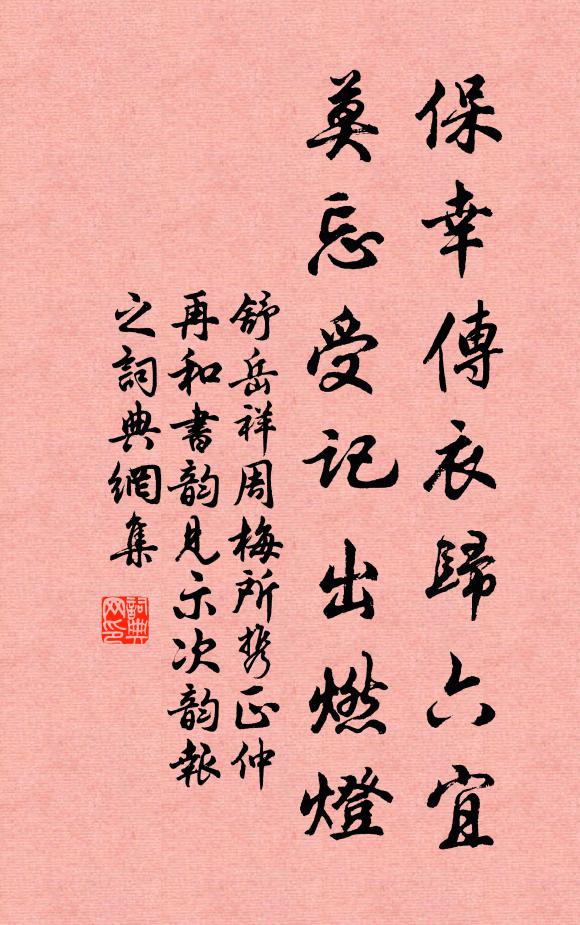 保幸傳衣歸六宜
莫忘受記出燃燈
舒岳祥周梅所携正仲
再和書韵見示次韵報
之詞典網集
詞典网印